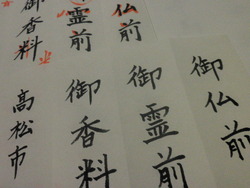 御仏前
仏前
御霊前
霊前
御香料
御香料
高松市